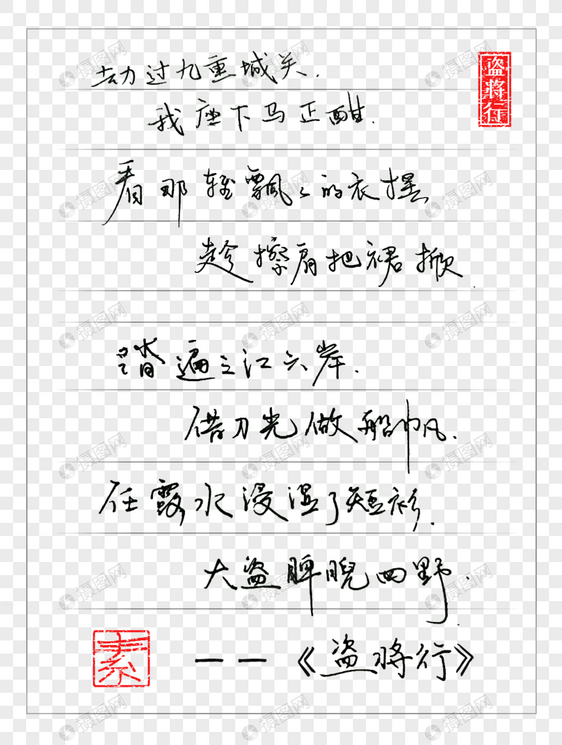 劫过九重城关.
盗將行
我座下马正酣.
看那轻飄々的衣摆
趁擦肩把裙掀.
踏遍三江六岸.
借刀光做船帆.
任露水浸湿了短衫.
大盗睥睨四野.
素
——《盗将行》
摄图网